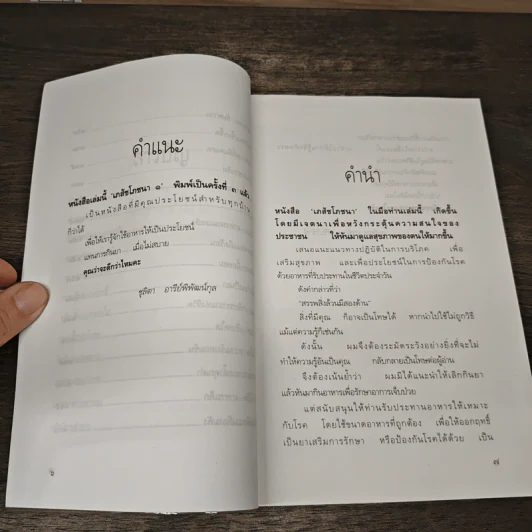 คำแนะ
หนังสือเล่มนี้ 'เภสัชโภชนา ๑' พิมพ์เป็นครั้งที่ ๓ แล้ว
เป็นหนังสือที่มีคุณประโยชน์สำหรับทุกบ้าน
ก็ว่าได้
เพื่อให้เรารู้จักใช้อาหารให้เป็นประโยชน์
แทนการกินยา เมื่อไม่สบาย
คุณว่าจะดีกว่าไหมคะ
ชุลิตา อารีย์พิพัฒน์กุล
๖
คำนำ
หนังสือ 'เภสัชโภชนา' ในมือท่านเล่มนี้ เกิดขึ้น
โดยมีเจตนาเพื่อหวังกระตุ้นความสนใจของ
ประชาชน ให้หันมาดูแลสุขภาพของตนให้มากขึ้น
เสนอแนะแนวทางปฏิบัติในการบริโภค เพื่อ
เสริมสุขภาพ และเพื่อประโยชน์ในการป้องกันโรค
ด้วยอาหารที่รับประทานในชีวิตประจำวัน
ดังคำกล่าวที่ว่า
"สรรพสิ่งล้วนมีสองด้าน"
สิ่งที่มีคุณ ก็อาจเป็นโทษได้ หากนำไปใช้ไม่ถูกวิธี
แม้แต่ความรู้ก็เช่นกัน
ดังนั้น ผมจึงต้องระมัดระวังอย่างยิ่งที่จะไม่
ทำให้ความรู้อันเป็นคุณ กลับกลายเป็นโทษต่อผู้อ่าน
จึงต้องเน้นย้ำว่า ผมมิได้แนะนำให้เลิกกินยา
แล้วหันมากินอาหารเพื่อรักษาอาการเจ็บป่วย
แต่สนับสนุนให้ท่านรับประทานอาหารให้เหมาะ
กับโรค โดยใช้ขนาดอาหารที่ถูกต้อง เพื่อให้ออกฤทธิ์
เป็นยาเสริมการรักษา หรือป้องกันโรคได้ด้วย เป็น
๗